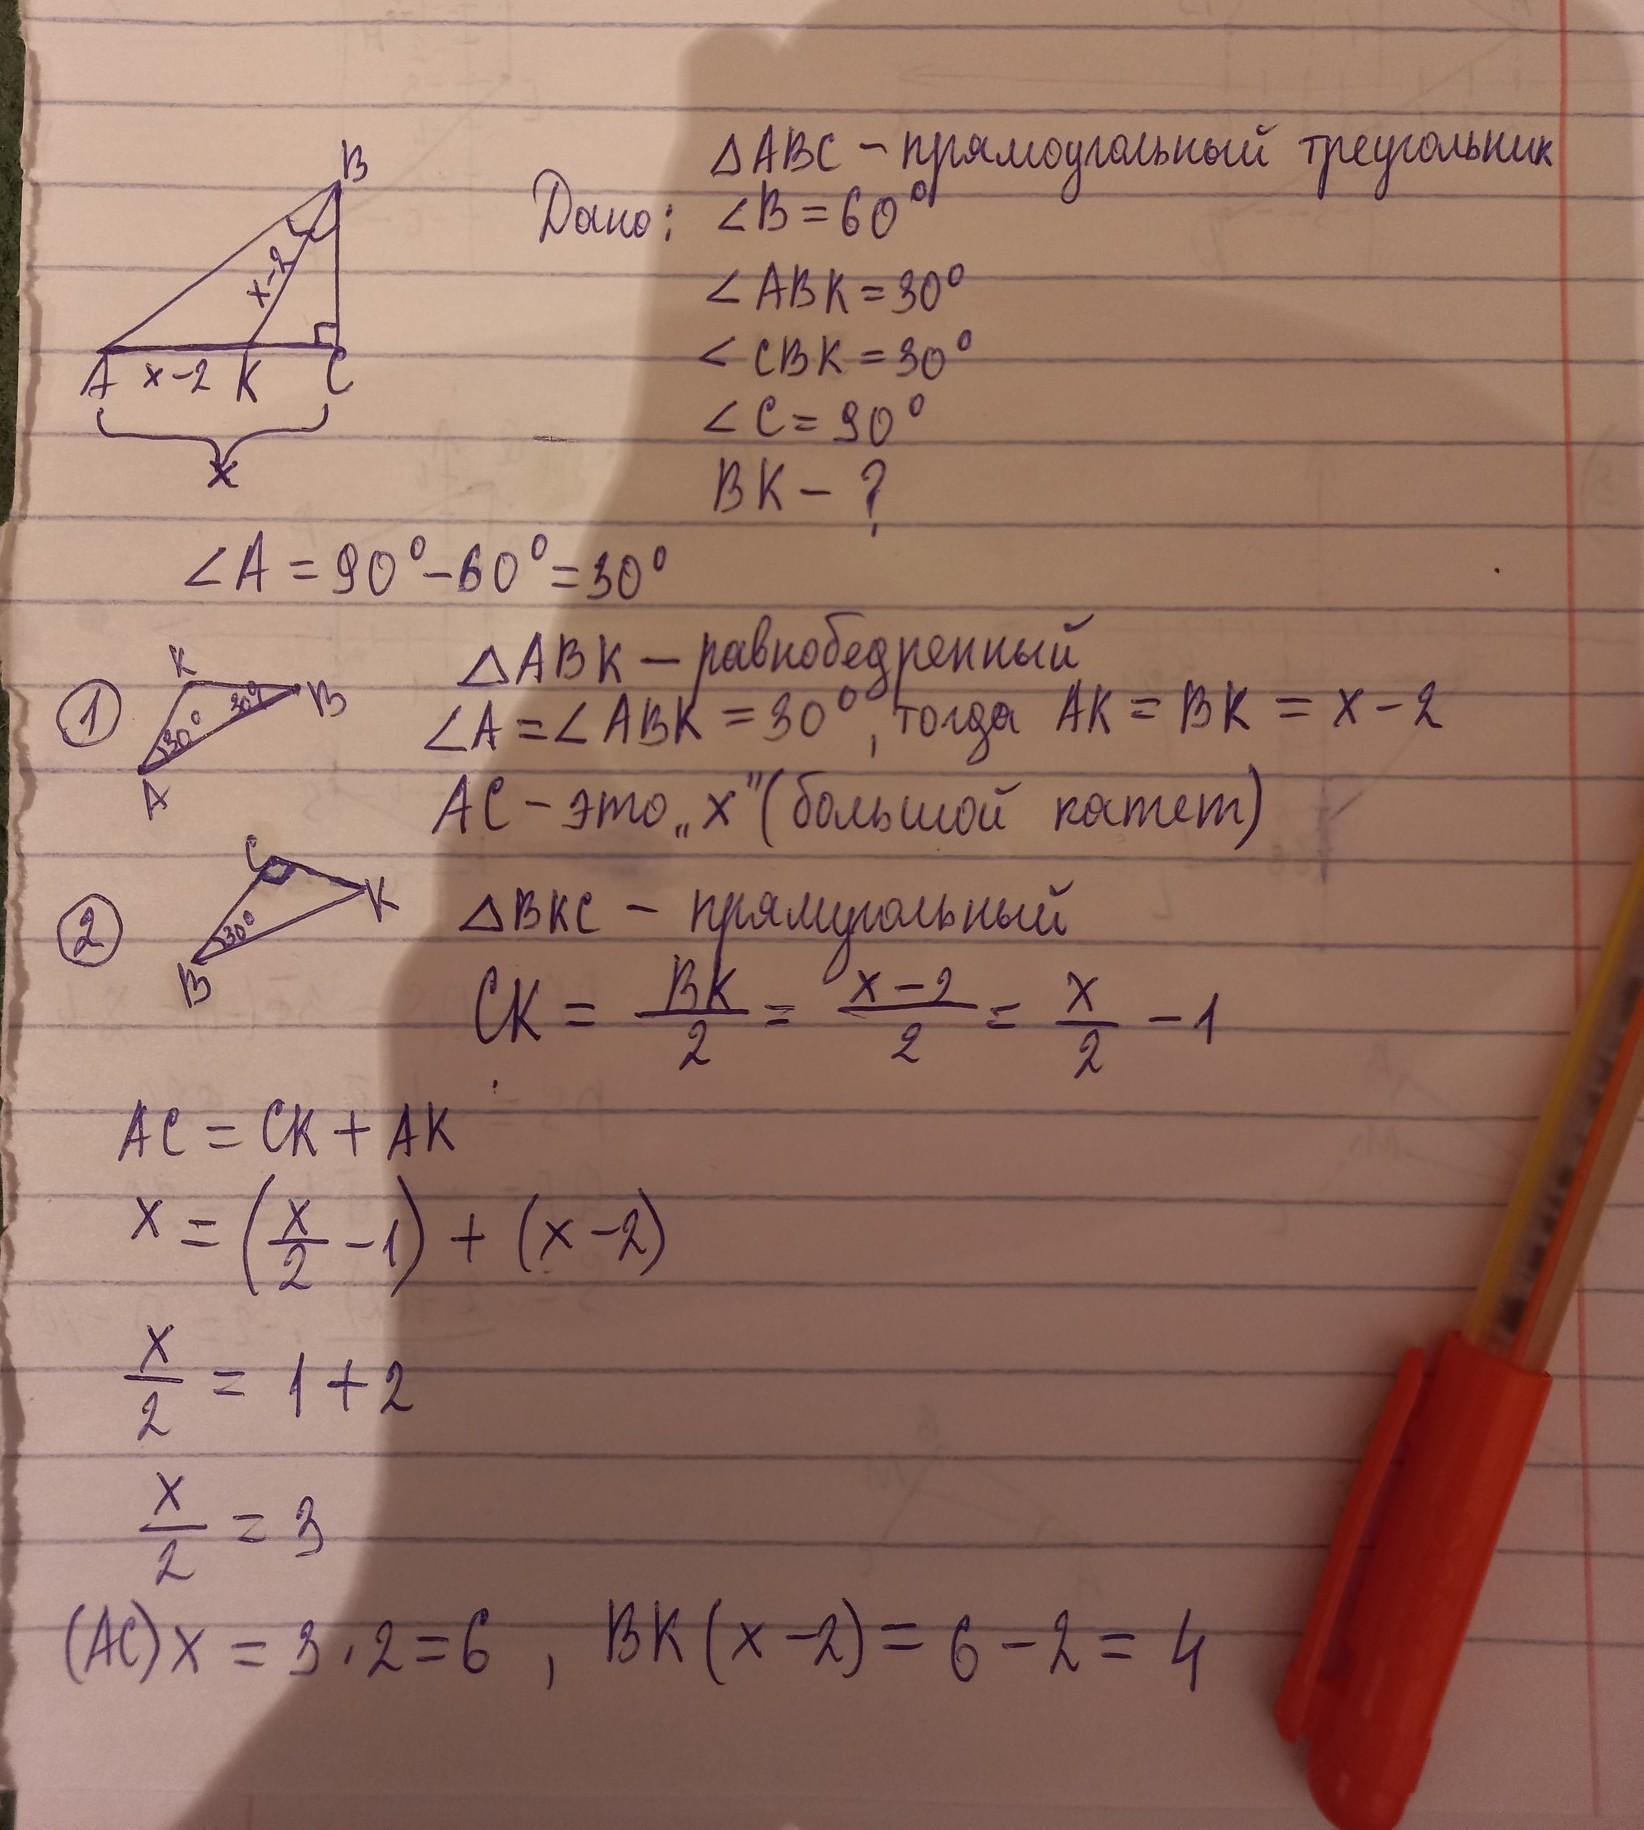 △ABC – прямоугольный треугольник
Дано: ∠B = 60°
∠ABK = 30°
∠CBK = 30°
∠C = 90°
BK – ?
B
x-2
A x-2 K C
x
∠A = 90° – 60° = 30°
① K 30° B 30° A
△ABK – равнобедренный
∠A = ∠ABK = 30°, тогда AK = BK = x – 2
AC – это „x" (большой катет)
② C K 30° B
△BKC – прямугольный
CK = BK/2 = x-2/2 = x/2 – 1
AC = CK + AK
x = (x/2 – 1) + (x – 2)
x/2 = 1 + 2
x/2 = 3
(AC) x = 3 · 2 = 6 , BK (x – 2) = 6 – 2 = 4